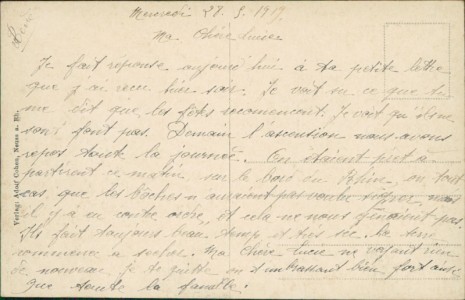 Mercredi 28.5.1919
Ma Chère Lucie
Je fait reponse aujourd'hui à ta petite lettre
que j'ai reçu hier soir. Je voit su ce que tu
me dit que les fêtes recomencent. Je voit qu'il ne
sont pas. Demain l'ascention nous avons
repos toute la journée. On étaient pret à
partir ce matin sur le bord du Rhin, en tout
cas, que les Boches n'auraient pas voulu signer, mais
il y a eu contre ordre, et cela ne nous
Ils fait toujours beau temp et très sec. la
commence a secher. Ma Chère Lucie ne voyant rien
de nouveau je te quitte en t'embrassant bien fort ainsi
que toute la famille.
Verlag: Adolf Cohen, Neuss a. Rh.